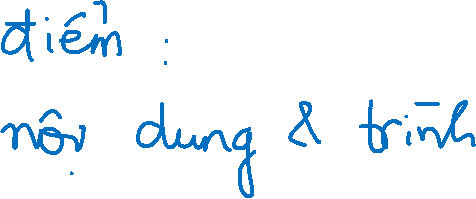 điểm :
nội dung & trình